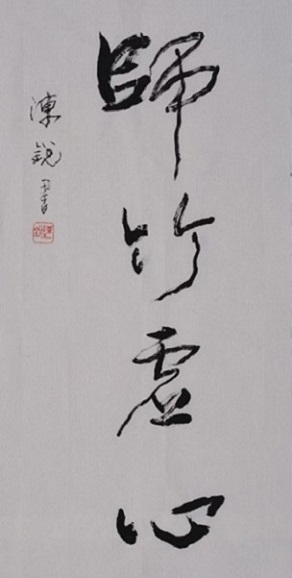 師竹虛心
陳銳書